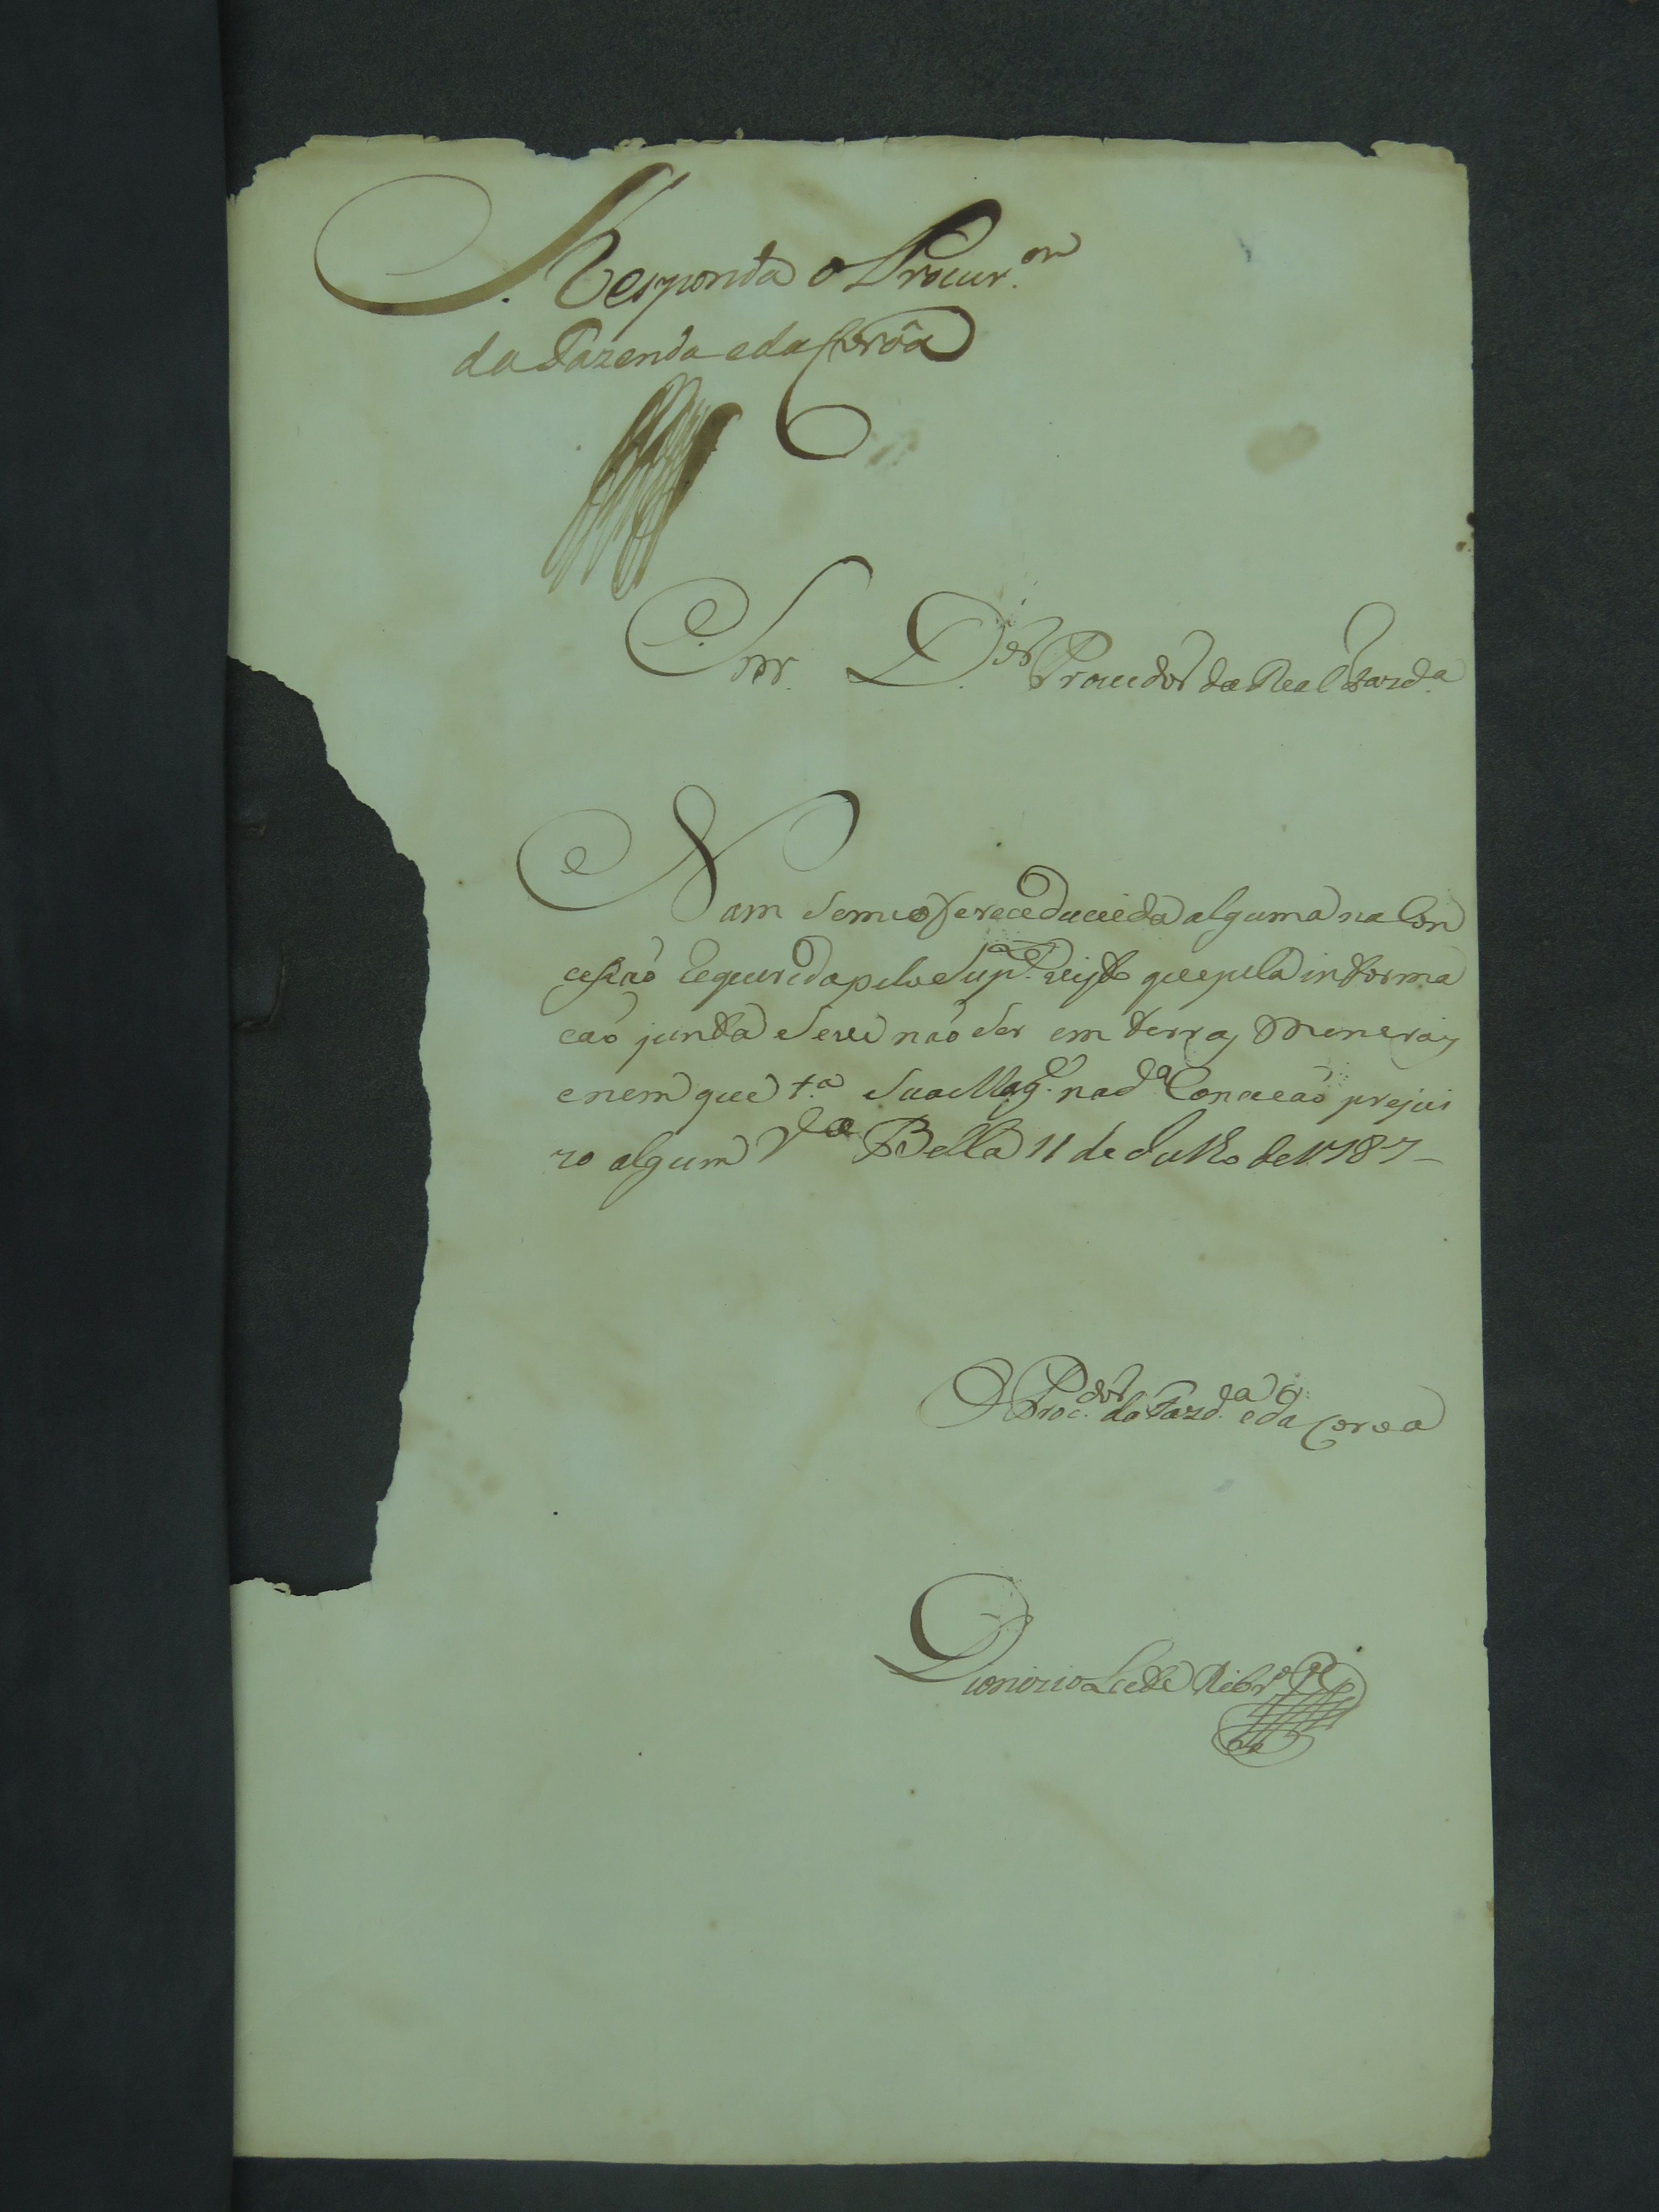 Responda o Procur.or
da Fazenda e da Corôa
Snr. D.or Provedor da Real Fazd.a
Nam se me oferece duvida alguma na Con
cessaõ requerida pelo Sup.e visto que pela informa
caõ junta se ve naõ ser em terras Mineraes
e nem que t.a Sua Mag.e na d.a Conceçaõ prejui
zo algum V.a Bella 11 de Julho de 1787
O Proc.dor da Fazd.a e da Coroa
Dionizio Leite Ribr.o